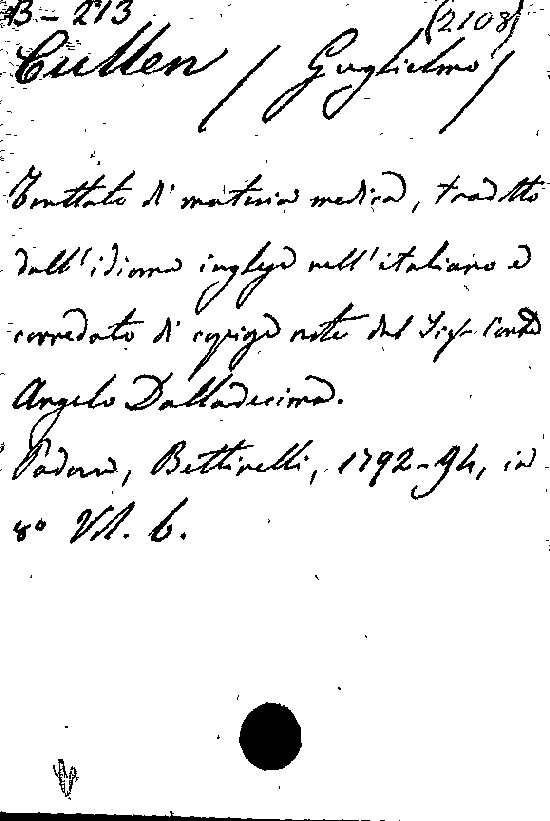 B - 213 (2108)
Cullen / Guglielmo /
Trattato di materia medica, tradotto
dall'idioma inglese nell'italiano e
corredato di copiose note dal Sigr Conte
Angelo Dalladecima.
Padova, Bettinelli, 1792-94, in
8º Vol. 6.